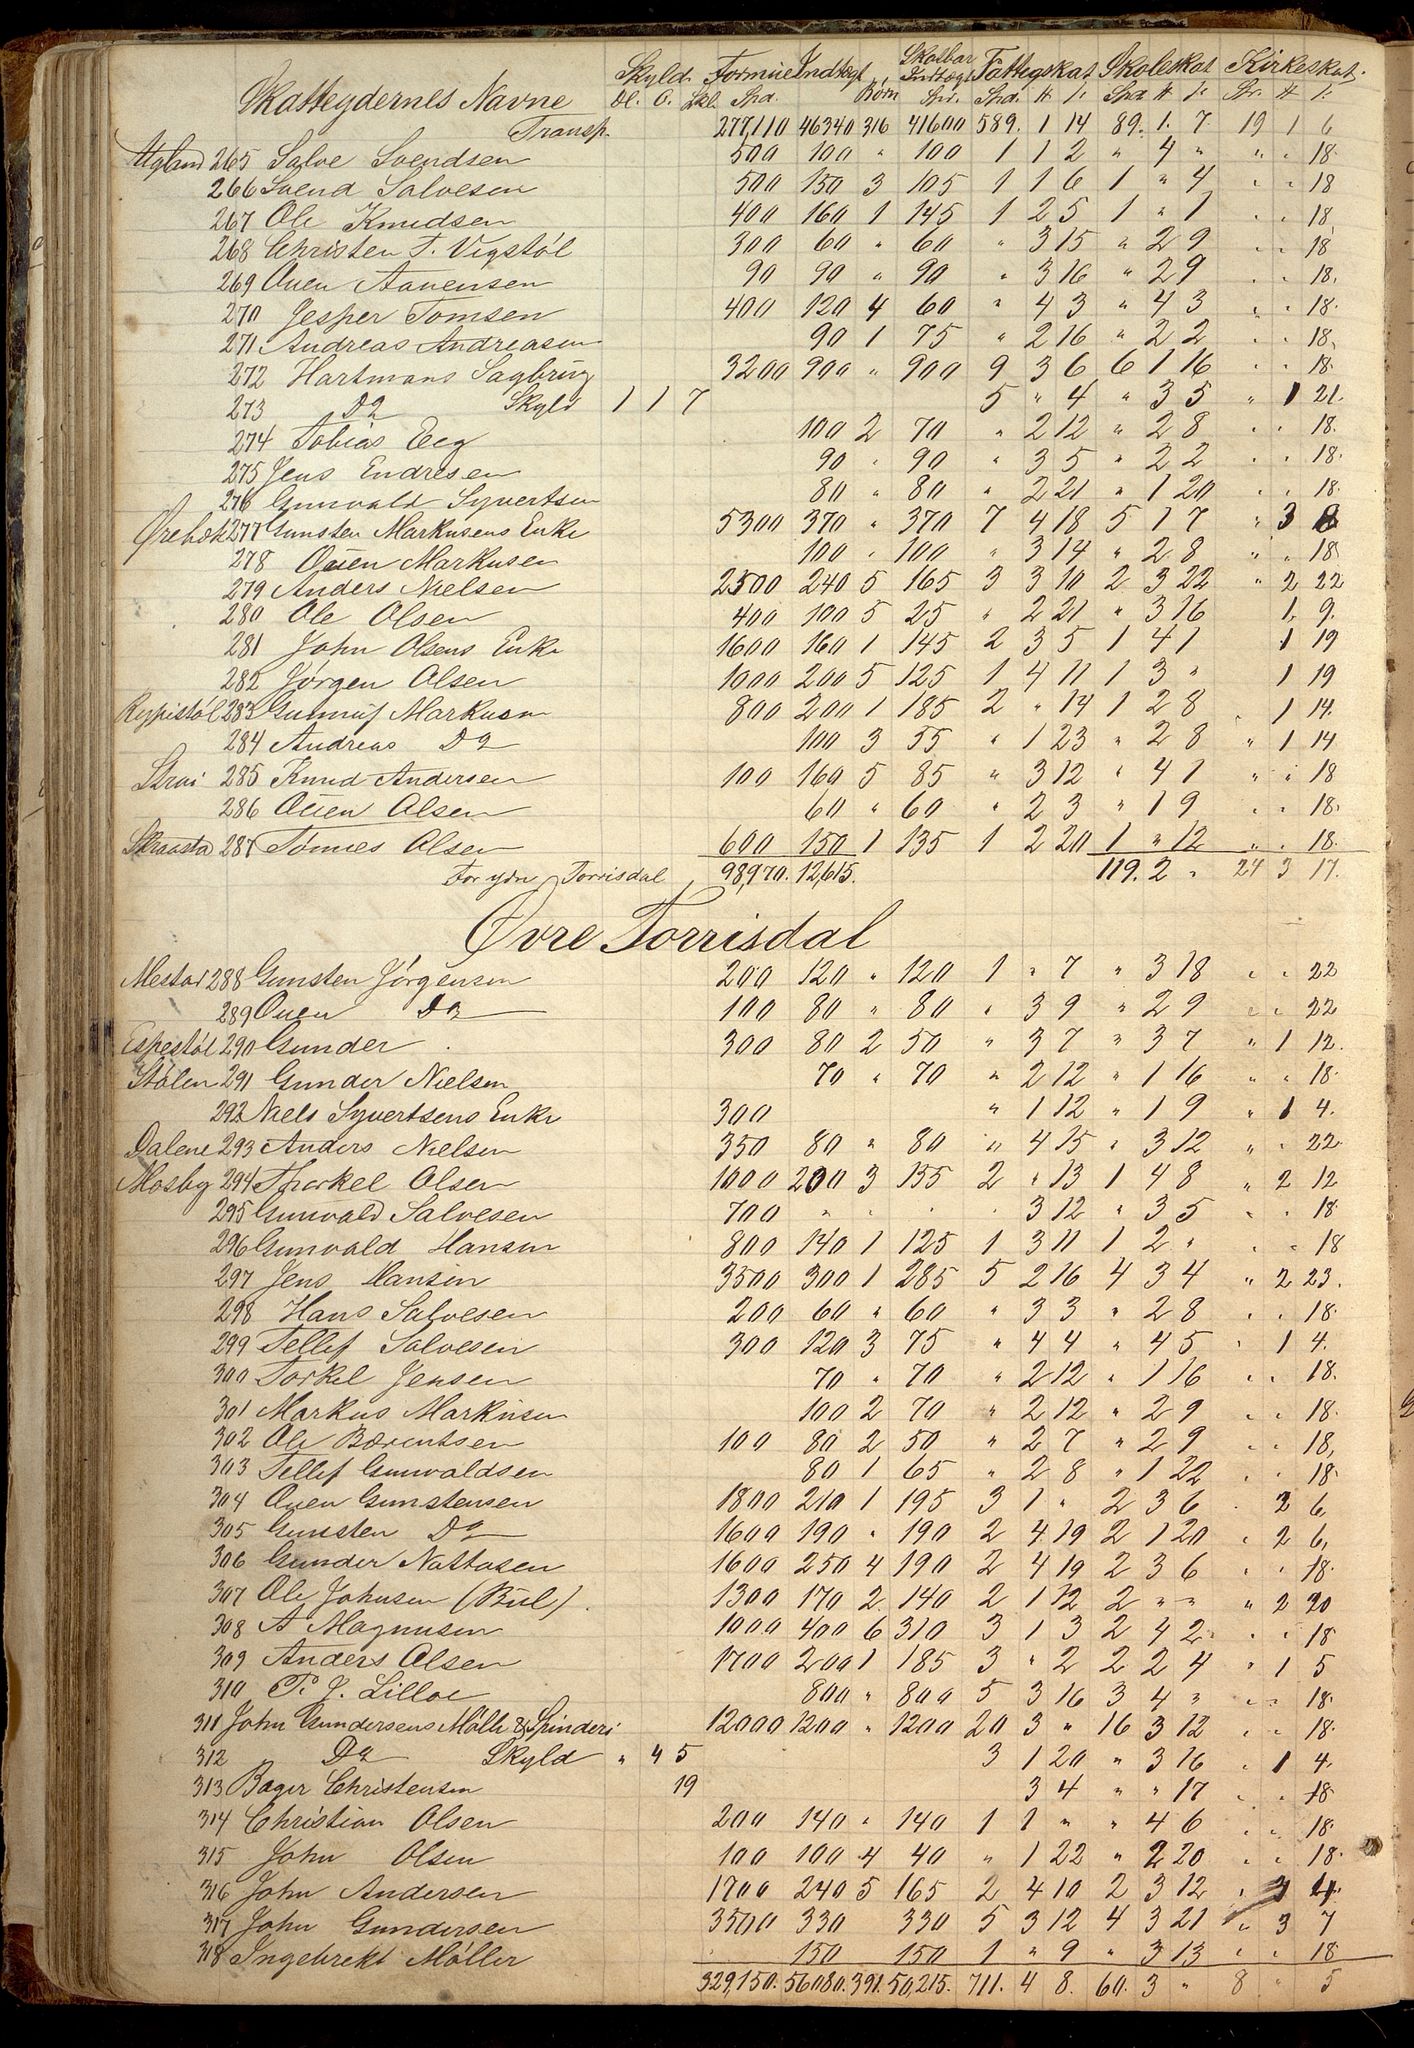 Skatteydernes Navne Skyld Formue Indtægt Børn Skatbar Indtægt Fattigskat Skoleskat Kirkeskat.
Dl. O. Skl. Spd. Spr. Spd. # ſ. Spd # ſ. Spr. # ſ.
Transp. 277,110 46340 316 41600 589. 1 14 89. 1. 7. 19 1 6
Aagland 265 Salve Svendsen 500 100 " 100 1 1 2 " 4 " " " 18.
266 Svend Salvesen 500 150 3 105 1 1 6 1 " 4 " " 18
267 Ole Knudsen 400 160 1 145 1 2 5 1 " 1 " " 18
268 Christen T. Vigstøl 300 60 " 60 " 3 15 " 2 9 " " 18
269 Ouen Aanensen 90 90 " 90 " 3 16 " 2 9 " " 18.
270 Jesper Tomsen 400 120 4 60 " 4 3 " 4 3 " " 18.
271 Andreas Andreasen 90 1 75 " 2 16 " 2 2 " " 18.
272 Hartmans Sagbrug 3200 900 " 900 9 3 6 6 1 16 " " 18.
273 Do Skyld 1 1 7 5 " 4 " 3 5 " 1 21.
274 Tobias Eeg 100 2 70 " 2 12 " 2 8 " " 18.
275 Jens Endresen 90 " 90 " 3 5 " 2 2 " " 18.
276 Gunvald Syvertsen 80 " 80 " 2 21 " 1 20 " " 18.
Ørebæk 277 Gunsten Markusens Enke 5300 370 " 370 7 4 18 5 1 7 " 3 8
278 Ouen Markusen 100 " 100 " 3 14 " 2 8 " " 18
279 Anders Nielsen 2500 240 5 165 3 3 10 2 3 22 " 2 22
280 Ole Olsen 400 100 5 25 " 2 21 " 3 16 1. 9.
281 John Olsens Enke 1600 160 1 145 2 3 5 1 4 1 1 19
282 Jørgen Olsen 1000 200 5 125 1 4 11 1 3 " 1 19
Rypistøl 283 Gunnuf Markusen 800 200 1 185 2 " 14 1 2 8 " 1 14.
284 Andreas Do 100 3 55 " 1 23 " 2 8 " 1 14
Strai 285 Knud Andersen 100 160 5 85 " 3 12 " 4 1 " " 18
286 Ouen Olsen 60 " 60 " 2 3 " 1 9 " " 18.
Skraasta 287 Tønnes Olsen 600 150 1 135 1 2 20 1 " 12 " " 18.
For ydre Torrisdal 98,970. 12,615. 119. 2 " 24 3 17.
Øvre Torrisdal
Mestad 288 Gunsten Jørgensen 200 120 " 120 1 " 7 " 3 18 " " 22
289 Ouen Do 100 80 " 80 " 3 9 " 2 9 " " 22
Espestøl 290 Gunder . 300 80 2 50 " 3 7 " 3 7 " 1 12.
Stølen 291 Gunder Nielsen 70 " 70 " 2 12 " 1 16 " " 18.
292 Niels Syvertsens Enke 300 " 1 12 " 1 9 " 1 4.
Dalene 293 Anders Nielsen 350 80 " 80 " 4 15 " 3 12 " " 22.
Mosby 294 Thorkel Olsen 1000 200 3 155 2 " 13 1 4 8 " 2 12
295 Gunvald Salvesen 700 " " " " 3 12 " 3 5 " " 18.
296 Gunvald Hansen 800 140 1 125 1 3 11 1 2 " " " 18
297 Jens Hansen 3500 300 1 285 5 2 16 4 3 4 " 2 23.
298 Hans Salvesen 200 60 " 60 " 3 3 " 2 8 " " 18.
299 Tellef Salvesen 300 120 3 75 " 4 4 " 4 5 " 1 4.
300 Torkel Jensen 70 " 70 " 2 12 " 1 16 " " 18.
301 Markus Markusen 100 2 70 " 2 12 " 2 9 " " 18.
302 Ole Bærentsen 100 80 2 50 " 2 7 " 2 9 " " 18.
303 Tellef Gunvaldsen 80 1 65 " 2 8 " 1 22 " " 18.
304 Ouen Gunstensen 1800 210 1 195 3 1 " 2 3 6 " 2 6,
305 Gunsten Do 1600 190 " 190 2 4 19 2 1 20 " 2 6,
306 Gunder Nattasen 1600 250 4 190 2 4 19 2 3 6 " " 18.
307 Ole Johnsen (Büel). 1300 170 2 140 2 1 12 2 " " " 2 20
308 A Magnusen 1000 400 6 310 3 1 3 2 4 2 " " 18
309 Anders Olsen 1700 200 1 185 3 " 2 2 2 4 " 1 5
310 P. J. Lilloe 800 " 800 5 3 16 3 4 " " " 18.
311 John Gundersens Mølle & Spinderi 12000 1200 " 1200 20 3 " 16 3 12 " " 18.
312 Do Skyld " 4 5 3 1 20 " 3 16 " 1 4.
313 Bager Christensen 19 3 4 " " 17 " " 18
314 Christian Olsen 200 140 " 140 1 1 " " 4 6 " " 18.
315 John Olsen 100 100 4 40 " 1 22 " 2 20 " " 18.
316 John Andersen 1700 240 5 165 2 4 10 2 3 12 "
317 John Gundersen 3500 330 330 5 3 12 4 3 21 " 3 7
318 Ingebrekt Møller 150 150 1 " 9 " 3 13 " " 18
329,150. 56080. 391. 50,215. 711. 4 8. 60. 3 " 8 " 5